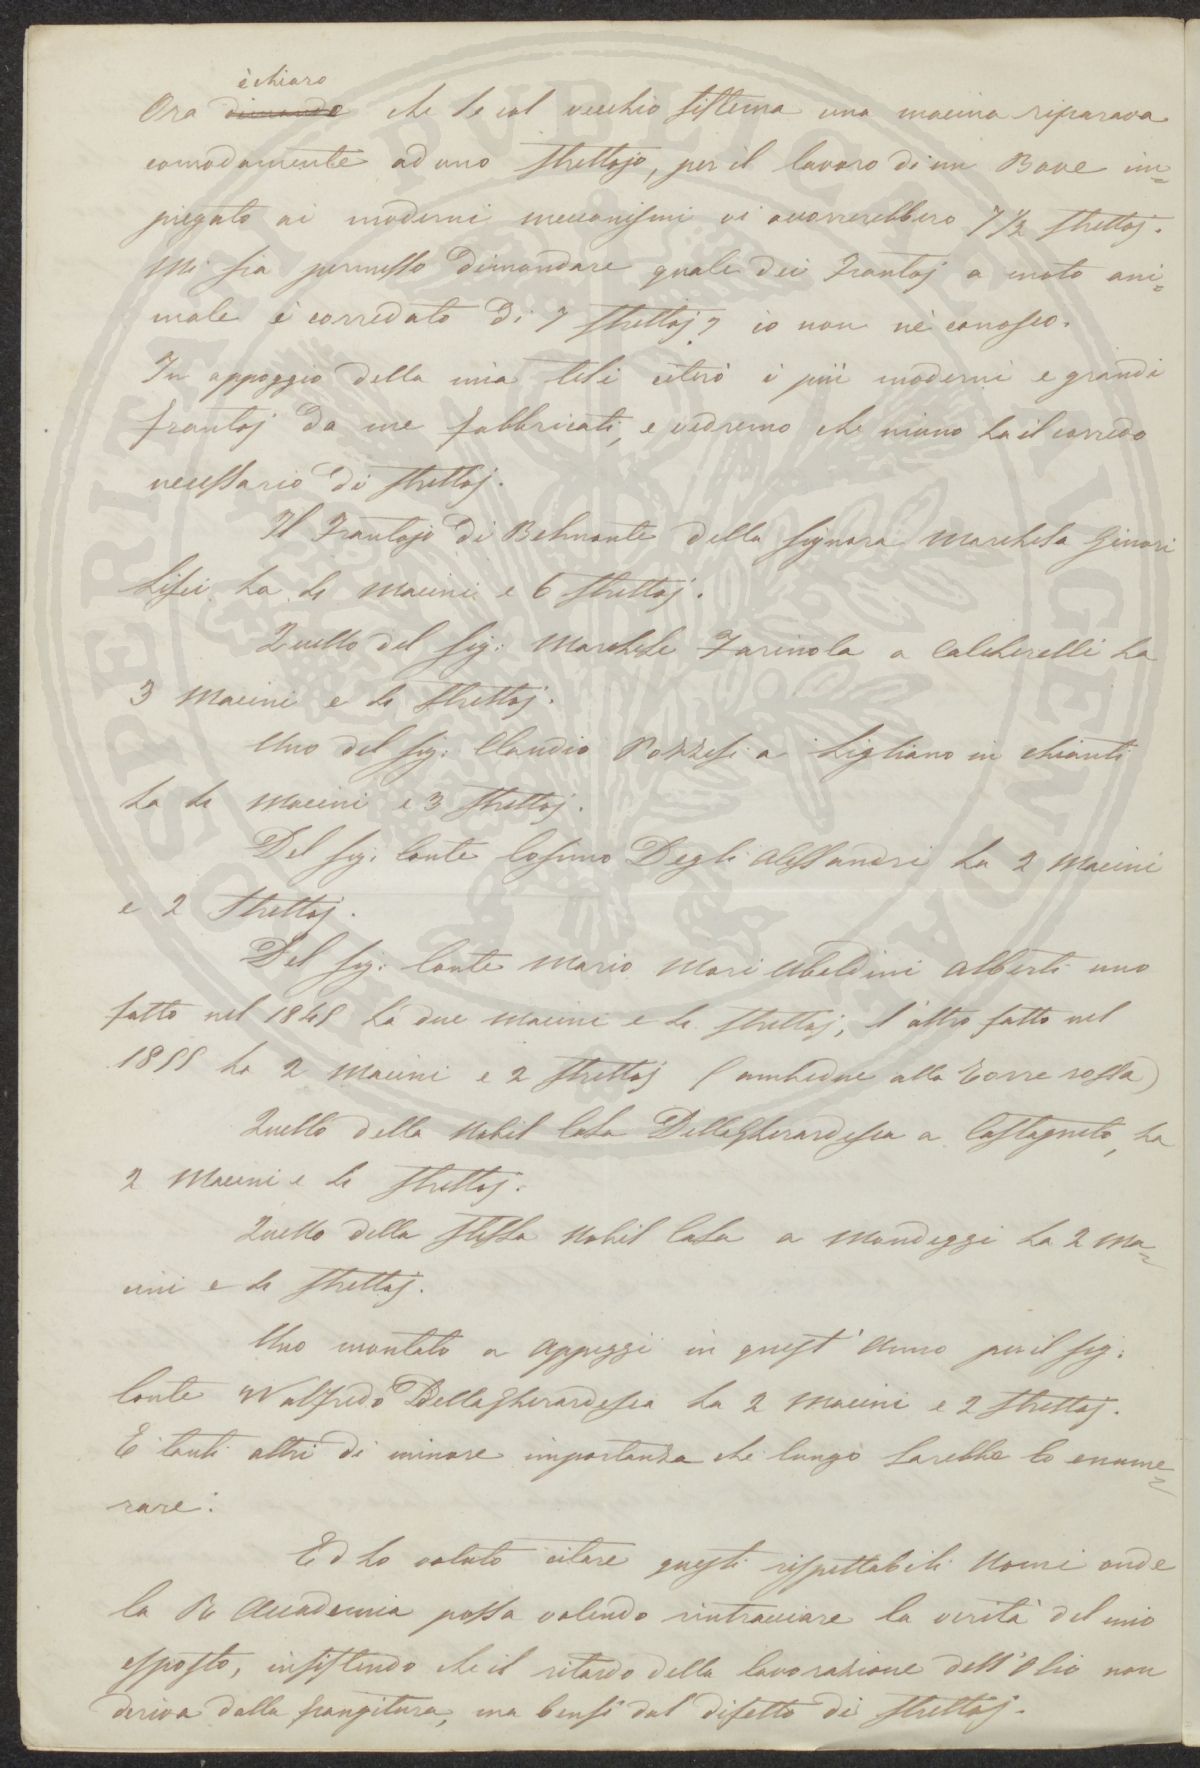 è chiaro
Ora dimando che se col vecchio sistema una macina riparava
comodamente ad uno strettojo, per il lavoro di un Bove im=
piegato ai moderni meccanismi vi occorrerebbero 7 1/2 strettoj.
Mi sia permesso dimandare quale dei Frantoj a moto ani=
male è corredato di 7 strettoj? io non nè conosco.
In appoggio della mia tesi citerò i più moderni e grandi
frantoj da me fabbricati, e vedremo che niuno ha il corredo
necessario di strettoj.
Il Frantojo di Belmonte della Signora Marchesa Ginori
Lisci ha 4 Macini e 6 strettoj.
Quello del Sig: Marchese Farinola a Calcherelli ha
3 Macini e 4 strettoj.
Uno del Sig: Claudio Pozzesi a Ligliano in Chianti
ha 4 Macini e 3 strettoj.
Del Sig: Conte Cosimo Degli Alessandri ha 2 Macini
e 2 strettoj.
Del Sig: Conte Mario Mori Ubaldini Alberti uno
fatto nel 1845 ha due Macini e 4 strettoj, l'altro fatto nel
1855 ha 2 Macini e 2 strettoj (ambedue alla Torre rossa)
Quello della Nobil Casa Della Gherardesca a Castagneto, ha
2 Macini e 4 strettoj.
Quello della stessa Nobil Casa a Mondeggi ha 2 Ma=
cini e 4 strettoj.
Uno montato a Appeggi in quest'Anno per il Sig:
Conte Walfredo Della Gherardesca ha 2 Macini e 2 strettoj.
E tanti altri di minore importanza che lungo sarebbe lo enume=
rare:
Ed ho voluto citare questi rispettabili Nomi onde
la R. Accademia possa volendo rintracciare la verità del mio
esposto, insistendo che il ritardo della lavorazione dell'Olio non
deriva dalla frangitura, ma bensì dal difetto di strettoj.